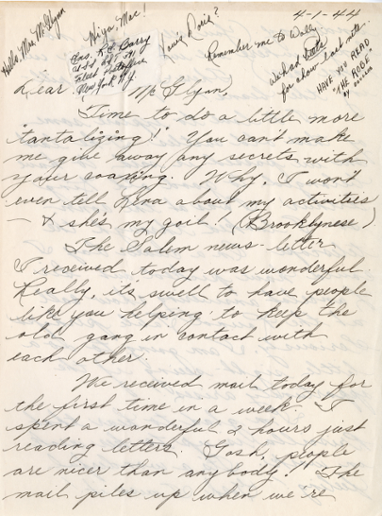 4-1-44
Hello, Mrs. McGlynn
Hiya Mac!
Ens. R.E. Barry
Fleet Post Office
New York N.Y.
Remember me to Wally
We had
for a down
HAVE YOU READ
"THE ROBE"
BY
Dear Mr. McGlynn,
Time to do a little more
"tantalizing!" You can't make
me give away any secrets with
your coaxing. Why, I won't
even tell Lena about my activities
— & she's my goil! (Brooklynese)
The Salem news-letter
I received today was wonderful.
Really, its swell to have people
like you helping to keep the
old gang in contact with
each other.
We received mail today for
the first time in a week. I
spent a wonderful 2 hours just
reading letters. Gosh, people
are nicer than anybody!! The
mail piles up when we're